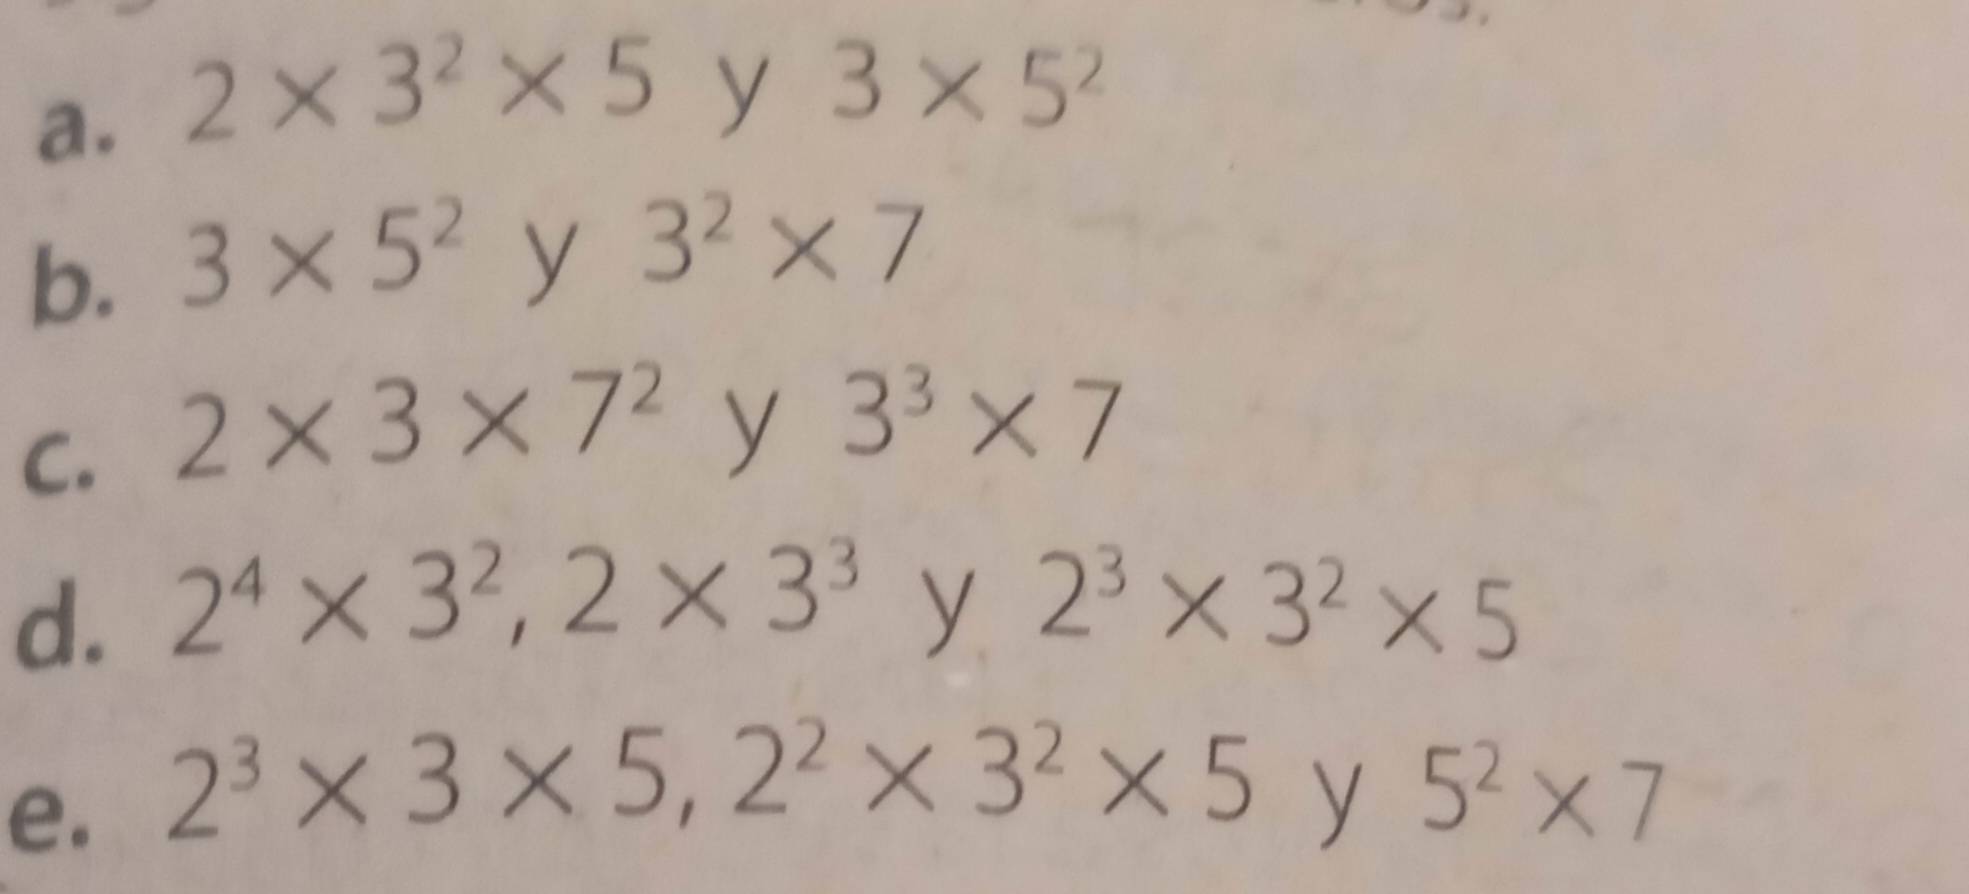 a. 2 × 3² × 5 y 3 × 5²
b. 3 × 5² y 3² × 7
c. 2 × 3 × 7² y 3³ × 7
d. 2⁴ × 3², 2 × 3³ y 2³ × 3² × 5
e. 2³ × 3 × 5, 2² × 3² × 5 y 5² × 7